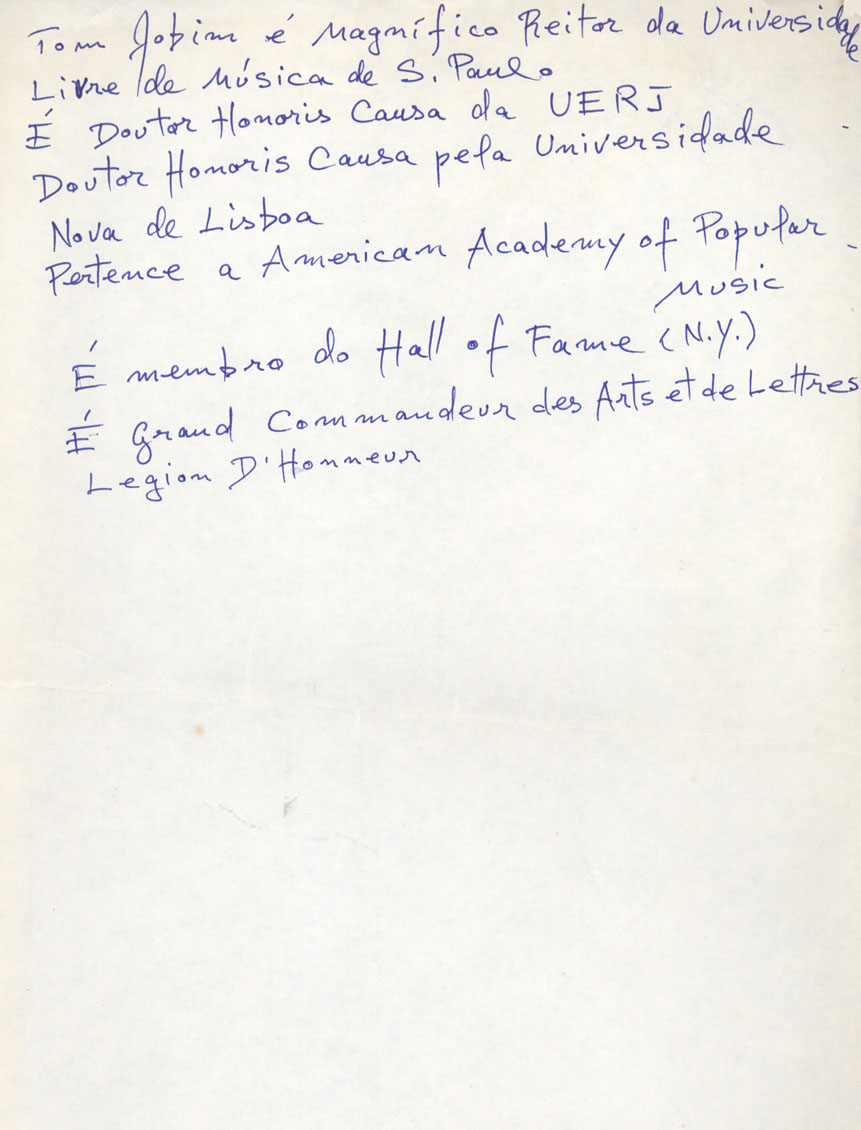 Tom Jobim é Magnífico Reitor da Universidade
Livre de Música de S. Paulo
É Doutor Honoris Causa da UERJ
Doutor Honoris Causa pela Universidade
Nova de Lisboa
Pertence a American Academy of Popular
Music
É membro do Hall of Fame (N.Y.)
É Grand Commandeur des Arts et de Lettres
Legion D'Honneur